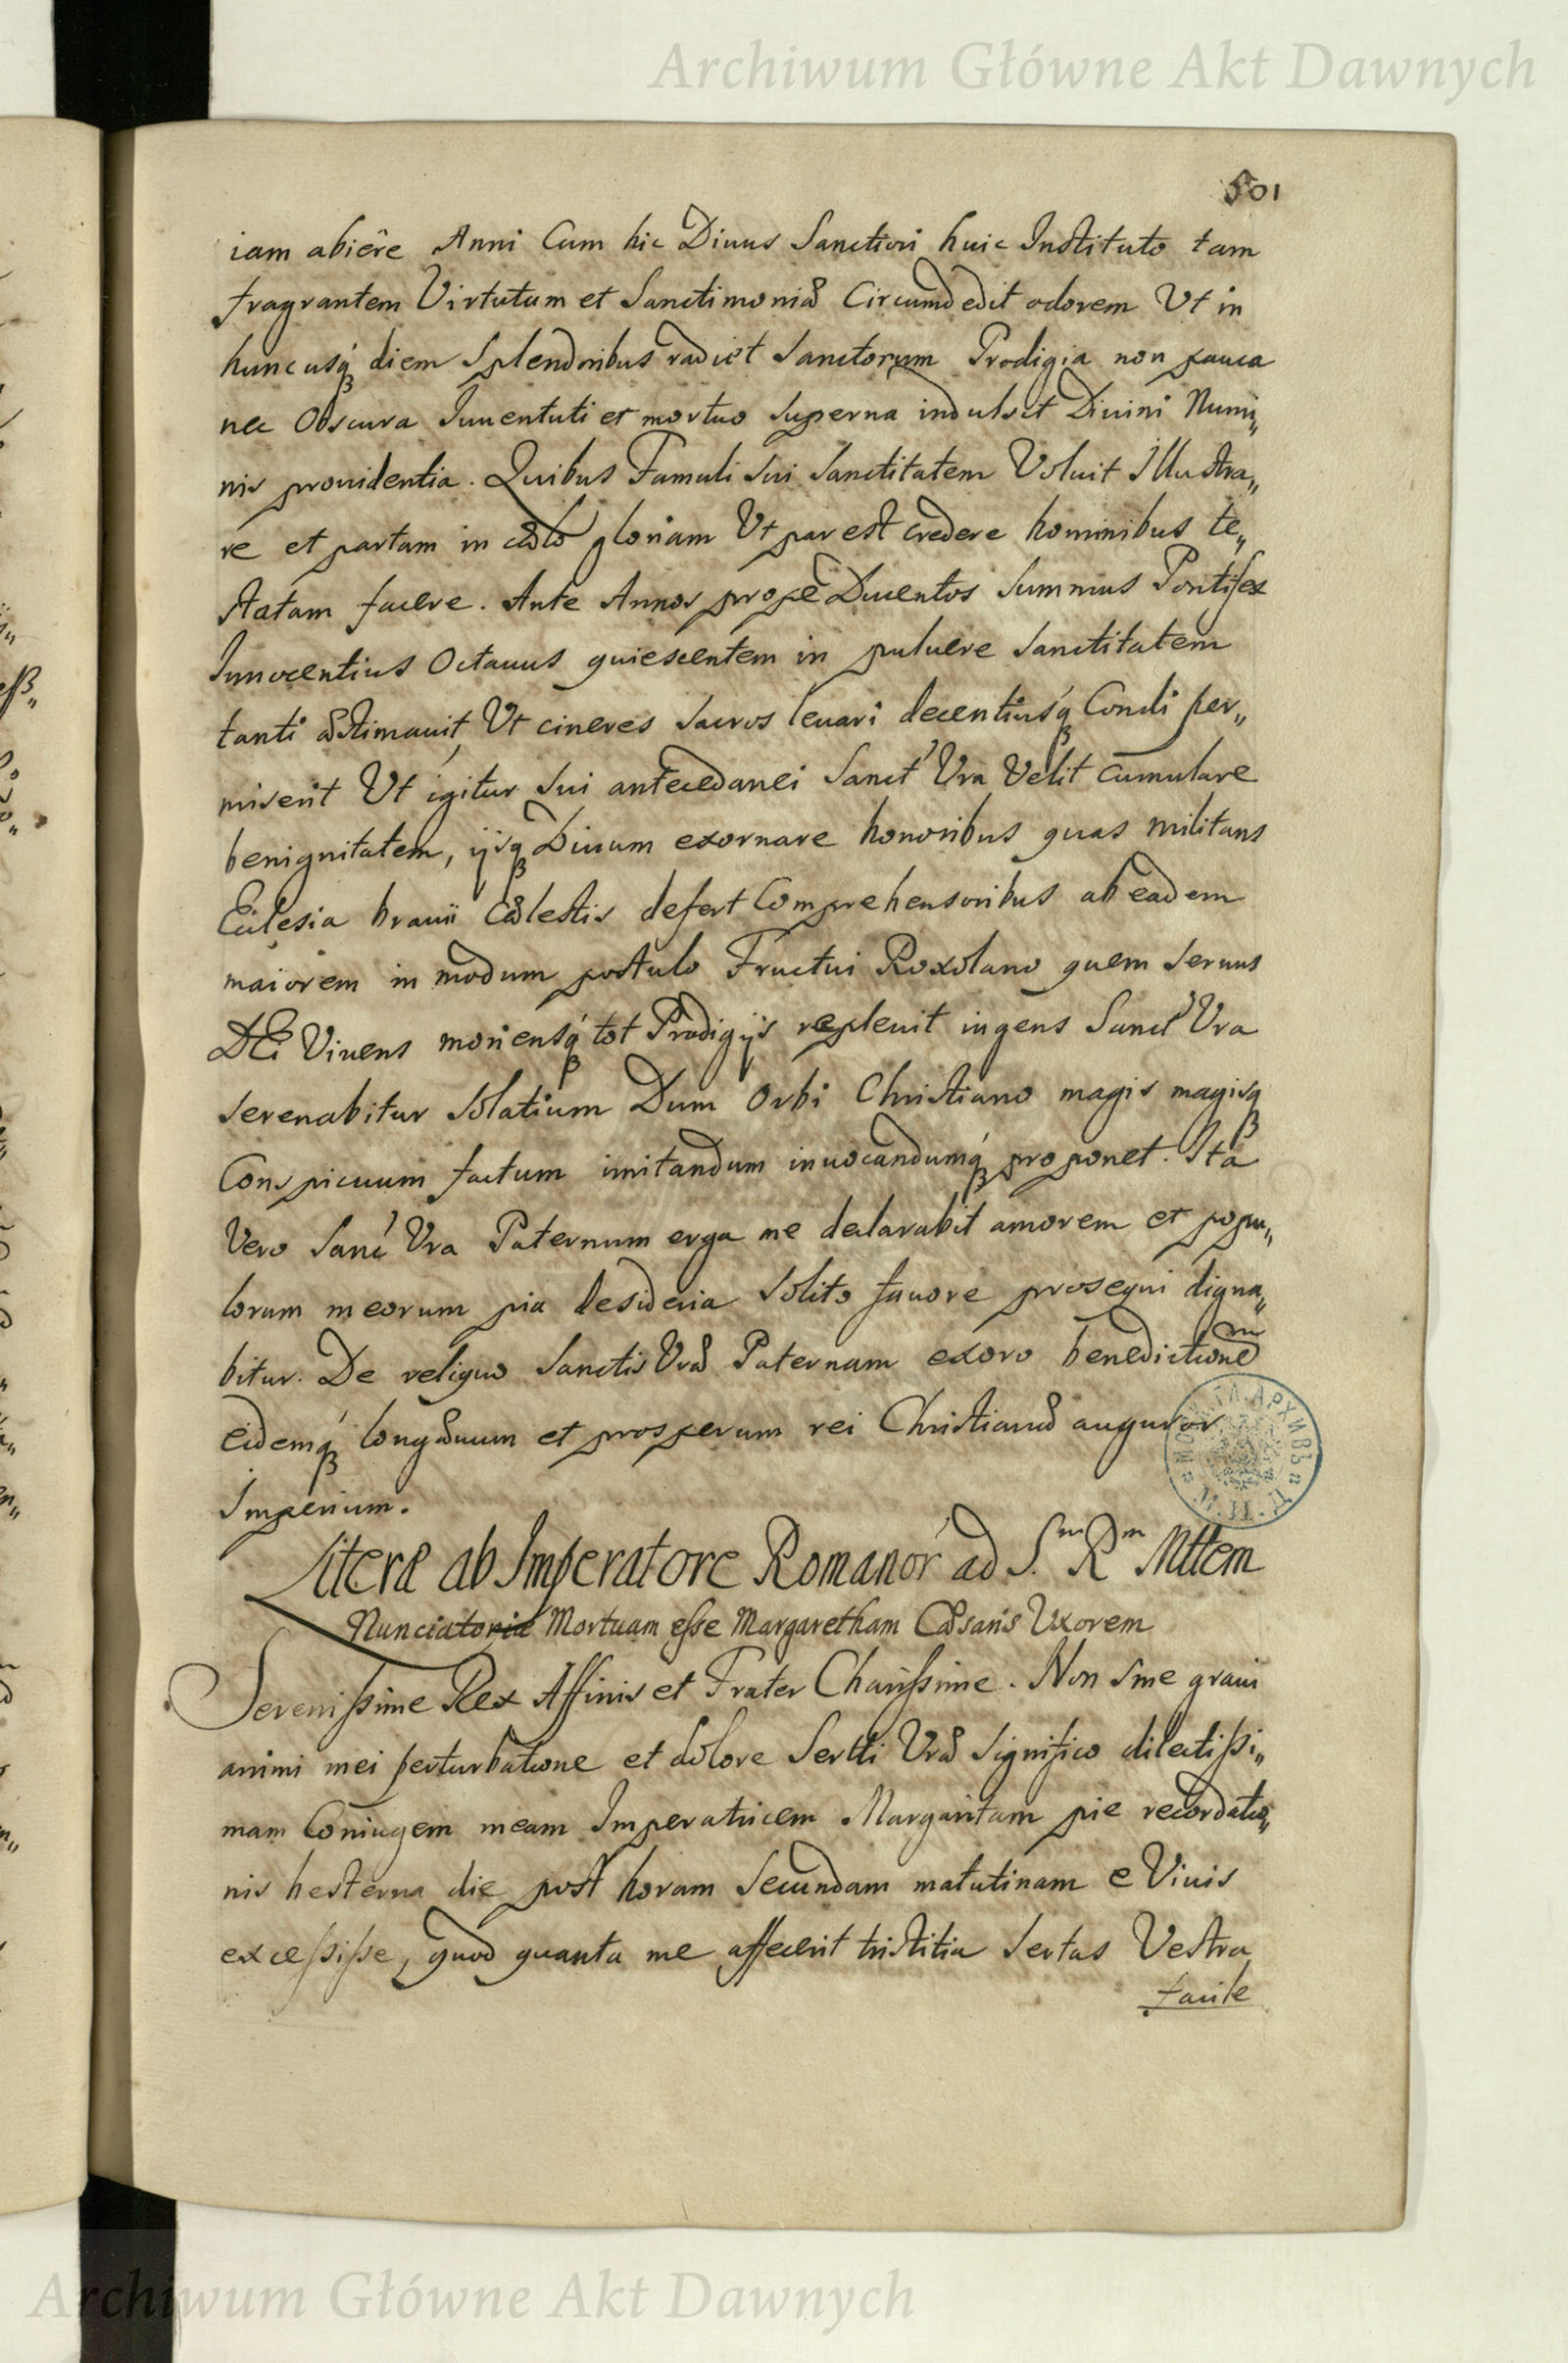 Archiwum Główne Akt Dawnych
501
iam abiêre Anni Cum hic Diuus Sanctiori huic Instituto tam
fragrantem Virtutum et Sanctimoniæ Circumdedit odorem Vt in
huncusq́ diem Splendoribus radiet Sanctorum Prodigia non pauca
nec Obscura Iuuentuti et mortuo superna indulsit Diuini Numi„
nis prouidentia. Quibus Famuli sui Sanctitatem Voluit Illustra„
re et partam in cælo gloriam Vt par est credere hominibus te„
statam facere. Ante Annos propè Ducentos Summus Pontifex
Innocentius Octauus quiescentem in puluere Sanctitatem
tanti æstimauit, Vt cineres sacros leuari decentiusq́ Condi per„
miserit Vt igitur sui antecedanei Sanct' Vra Velit cumulare
benignitatem, ijsq Diuum exornare honoribus quas militans
Eclesia brauii Cælestis defert Comprehensoribus ab eadem
maiorem in modum postulo Fructui Roxolano quem seruus
DEi Viuens moriensq́ tot Prodigijs repleuit ingens Sanct' Vra
serenabitur solatium Dum Orbi Christiano magis magisq
Conspicuum factum imitandum inuocandumq́ proponet. Ita
Vero Sanc' Vra Paternum erga me declarabit amorem et popu„
lorum meorum pia desideria solito fauore prosequi digna„
bitur. De reliquo Sanctis Vræ Paternam exoro benedictione m
eidemq́ longæuum et prosperum rei Christianæ auguror
Imperium.
МОСК. ГЛ. АРХИВЪ М.И.Д.
Literæ ab Imperatore Romanor' ad S.m R.m Mttem
Nunciatoriæ Mortuam esse Margaretham Cæsaris Uxorem
Serenissime Rex Affinis et Frater Charissime. Non sine graui
animi mei perturbatione et dolore Sertti Vræ significo dilectissi„
mam Coniugem meam Imperatricem Margaritam pie recordatio„
nis hesterna die post horam secundam matutinam e Viuis
excessisse, quod quanta me affecerit tristitia Sertas Vestra
facile
Archiwum Główne Akt Dawnych